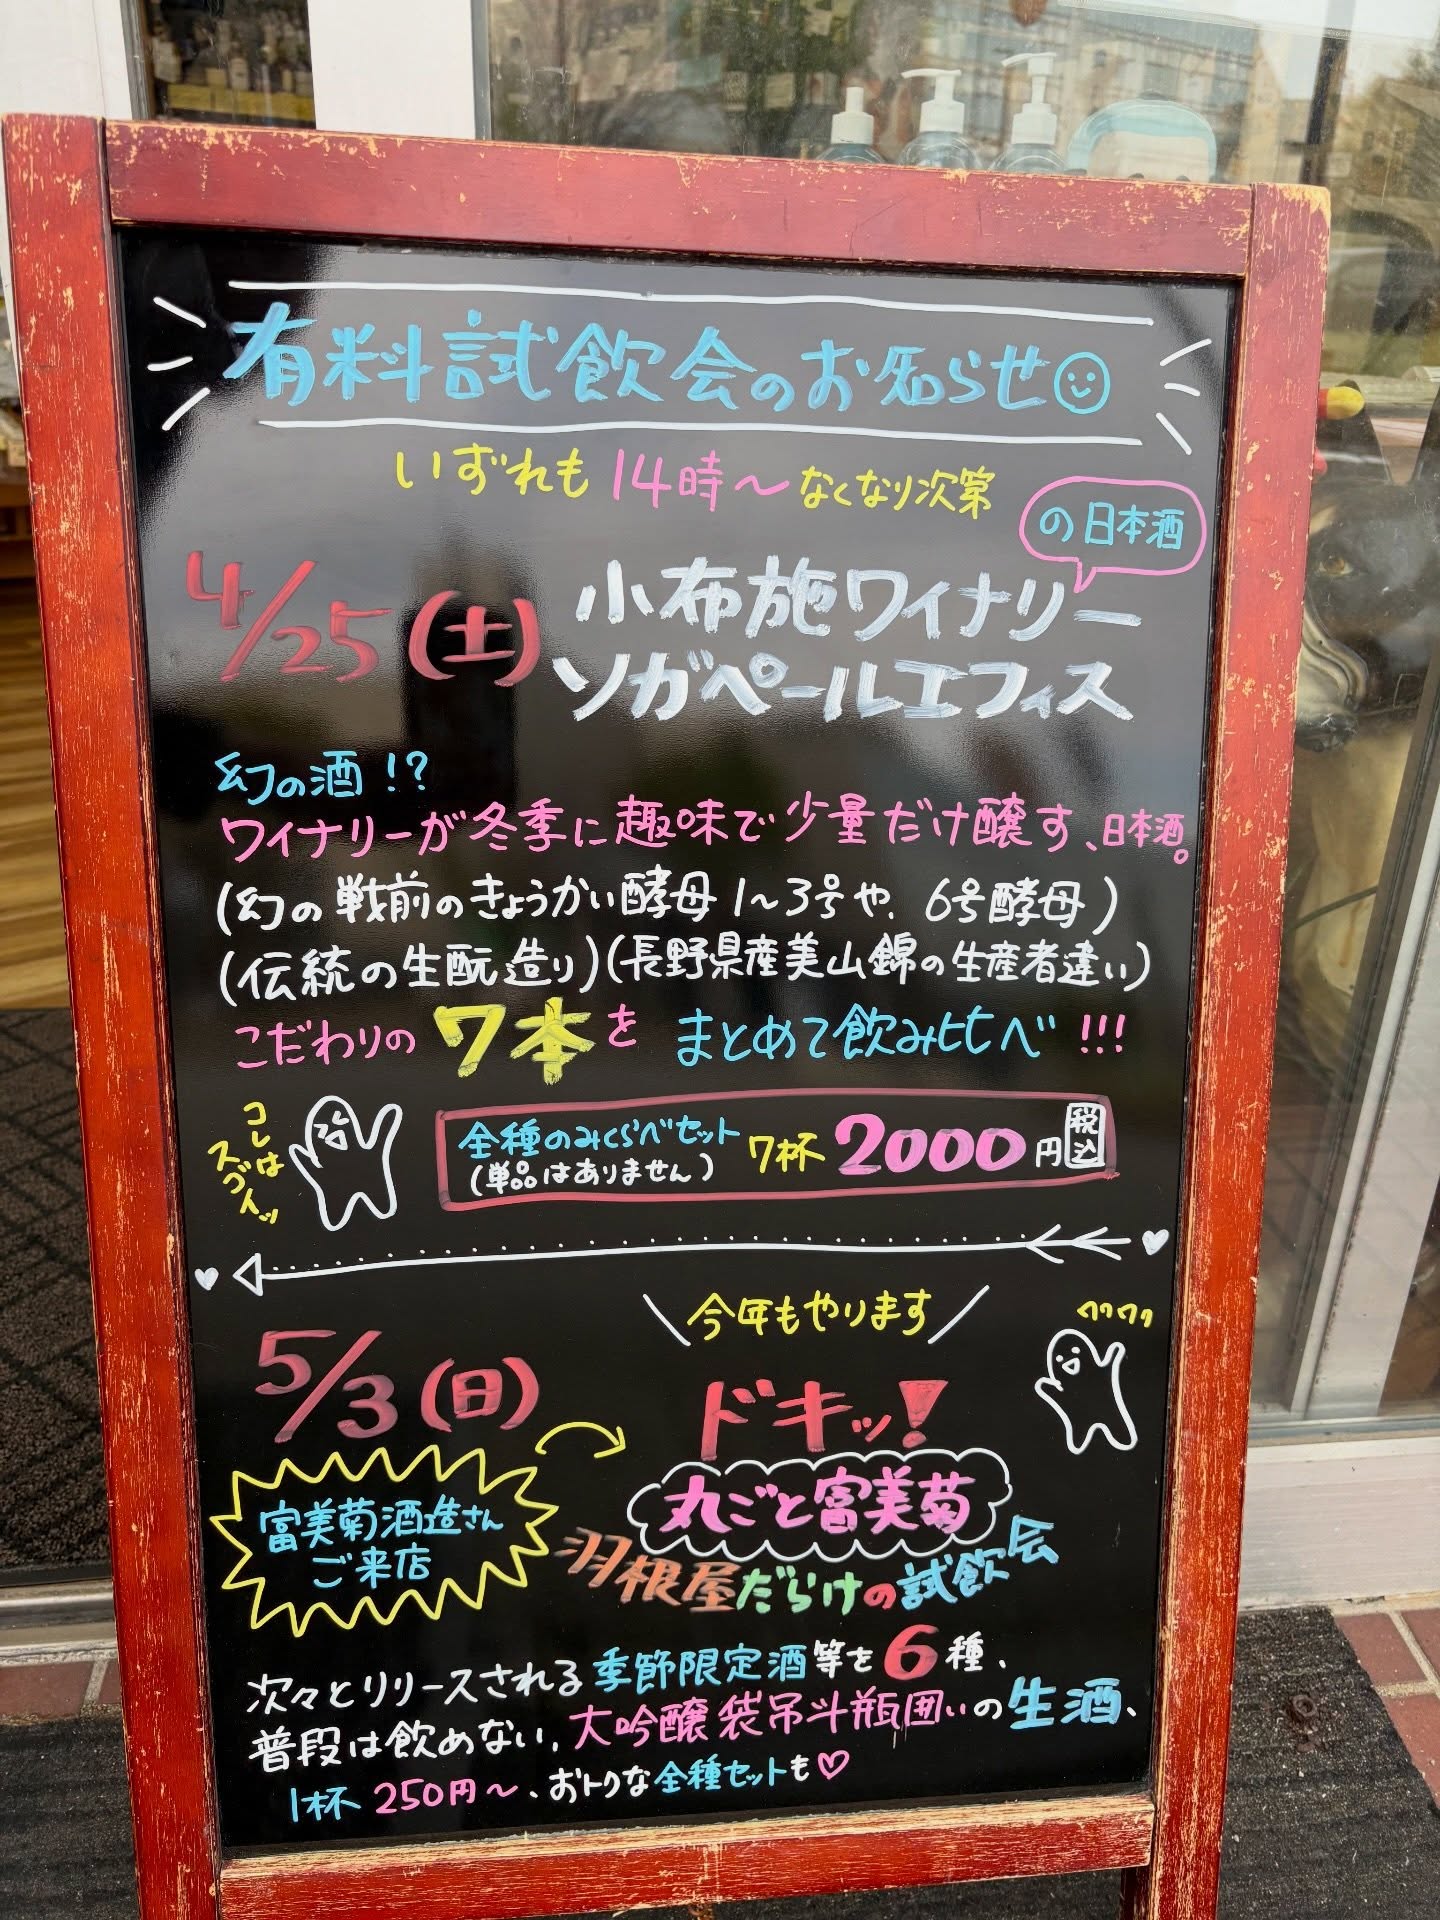 有料試飲会のお知らせ
いずれも 14時〜なくなり次第
の日本酒
4/25(土) 小布施ワイナリー
ソガペールエフィス
幻の酒!?
ワイナリーが冬季に趣味で少量だけ醸す、日本酒。
(幻の戦前のきょうかい酵母1〜3号や、6号酵母)
(伝統の生酛造り)(長野県産美山錦の生産者違い)
こだわりの7本をまとめて飲み比べ!!!
コレは
スゴイッ
全種のみくらべセット 7杯 2000円 税込
(単品はありません)
今年もやります
ワクワク
5/3(日) ドキッ!
丸ごと富美菊
富美菊酒造さん
ご来店
羽根屋だらけの試飲会
次々とリリースされる季節限定酒等を6種、
普段は飲めない、大吟醸袋吊斗瓶囲いの生酒、
1杯 250円〜、おトクな全種セットも♡